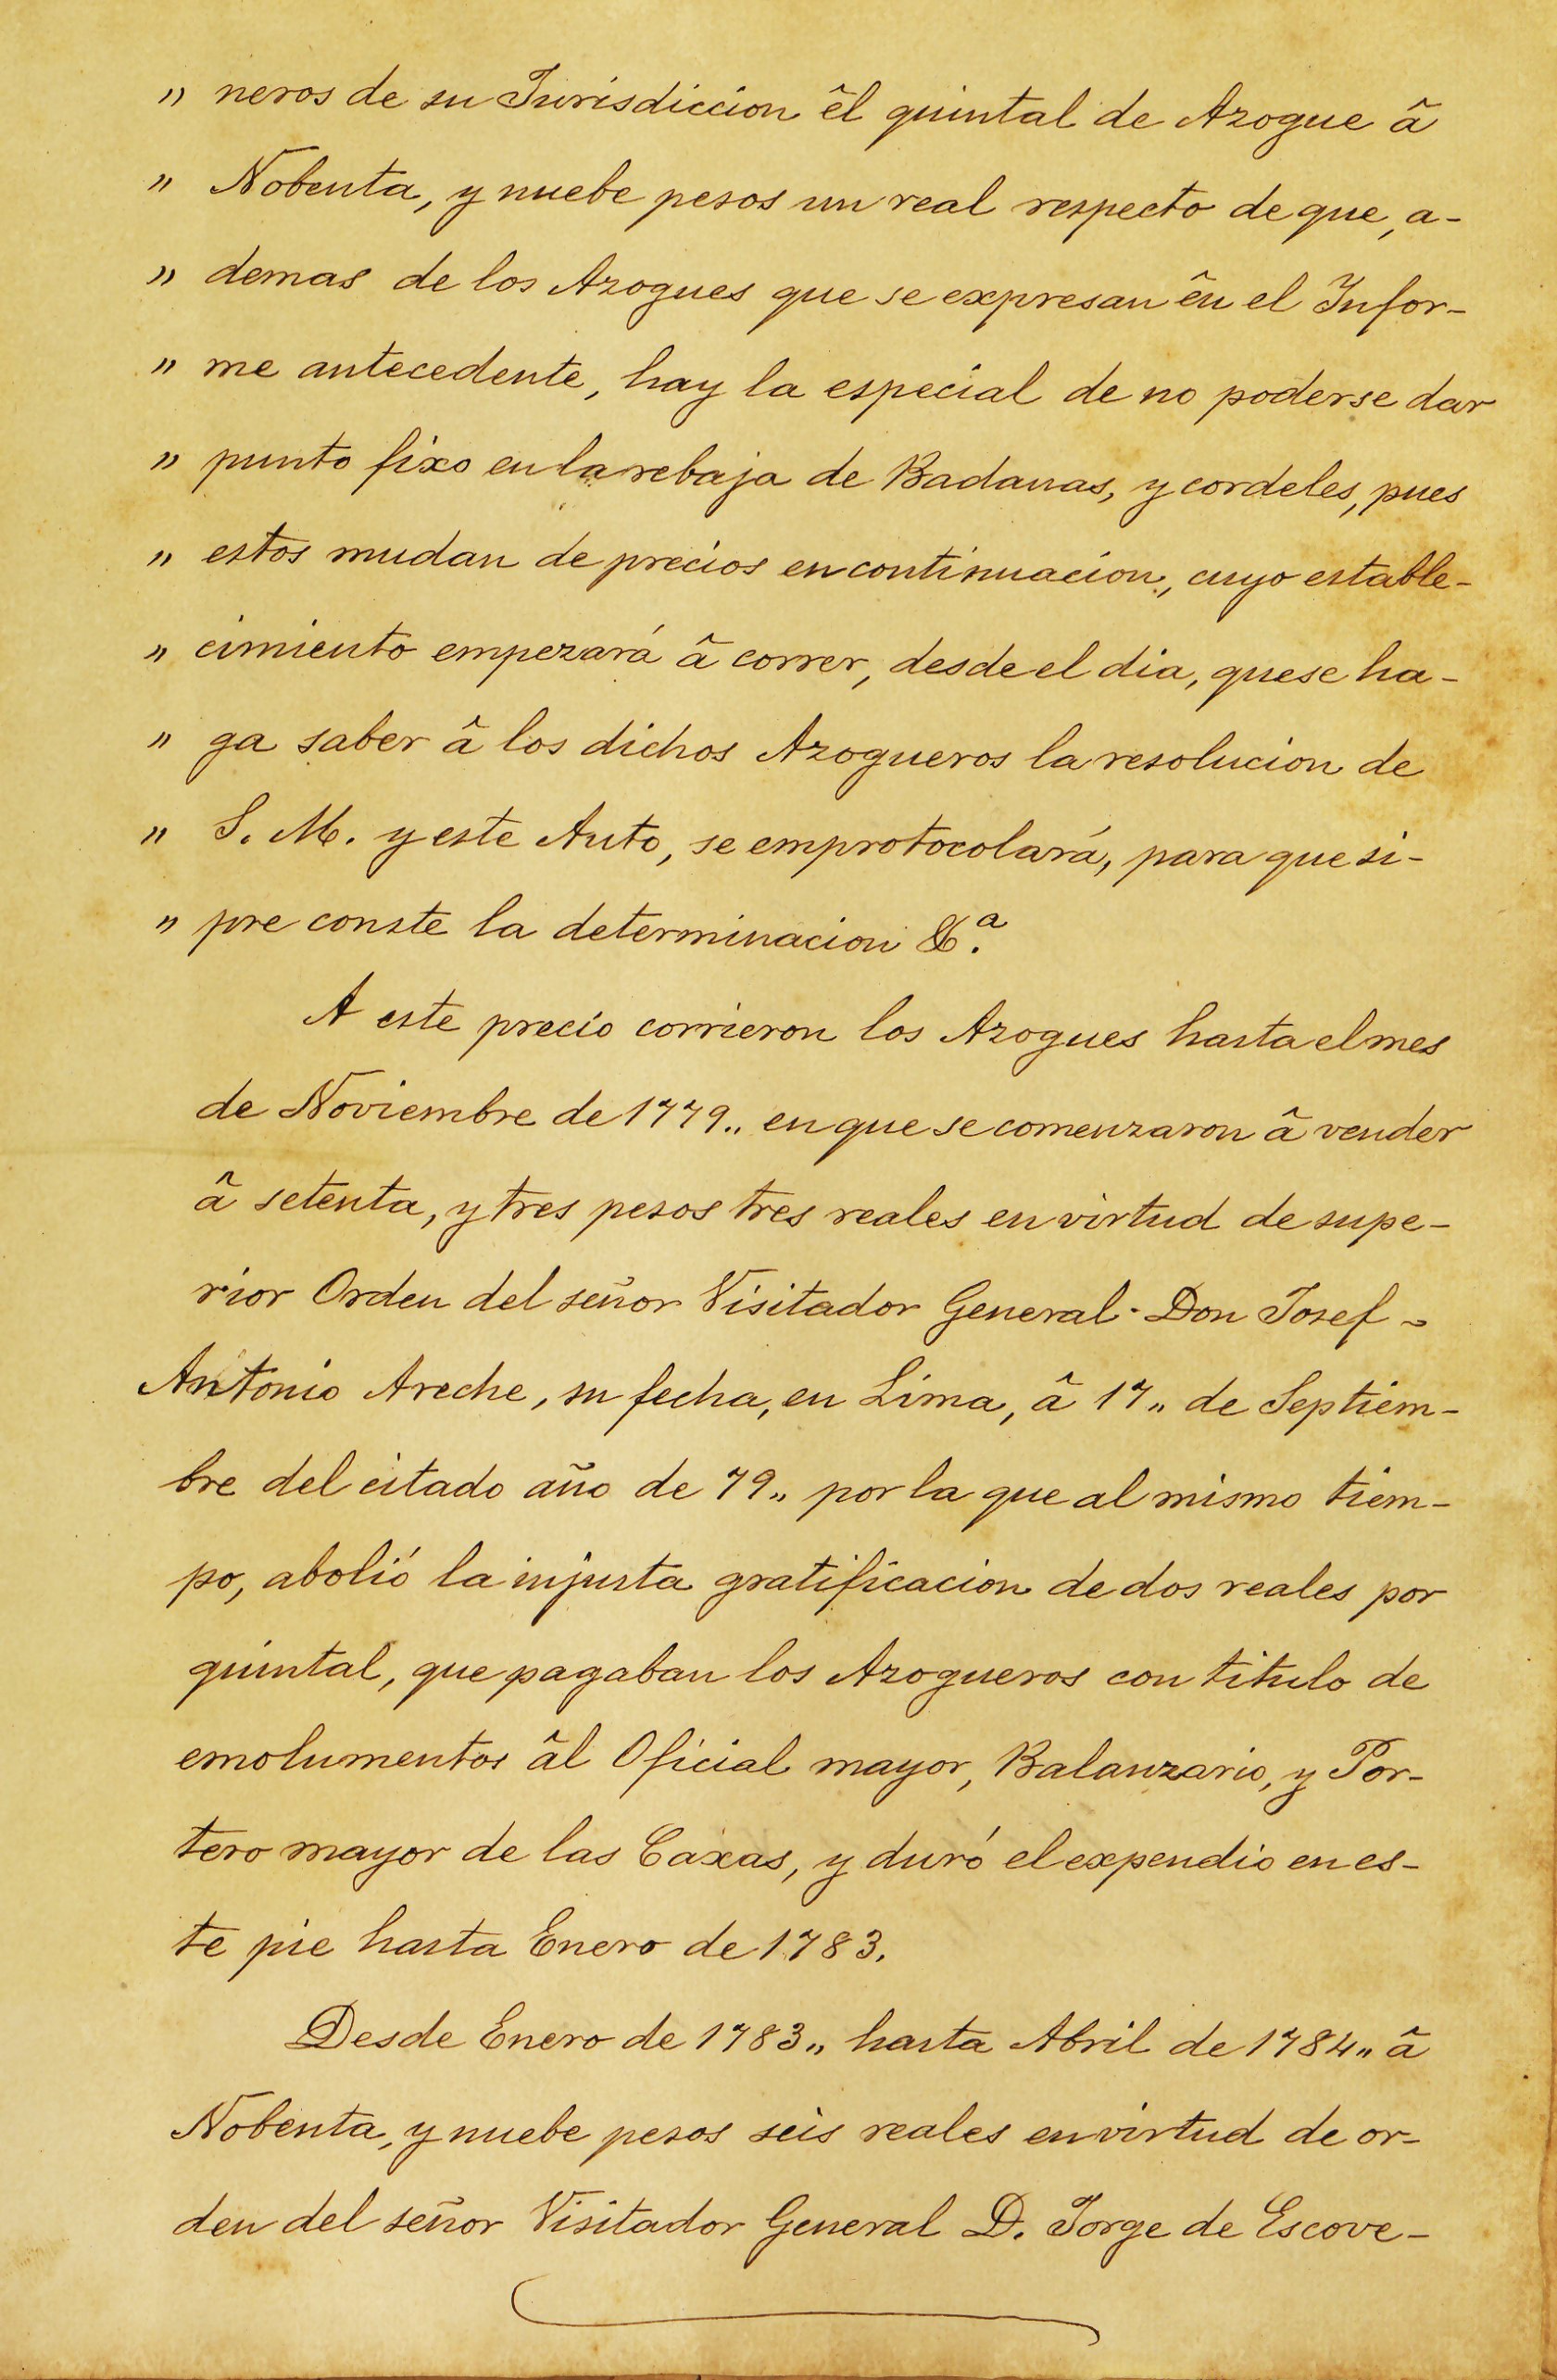 " neros de su Jurisdiccion êl quintal de Azogue â
" Nobenta, y nuebe pesos un real respecto de que, a-
" demas de los Azogues que se expresan ên el Infor-
" me antecedente, hay la especial de no poderse dar
" punto fixo en la rebaja de Badanas, y cordeles, pues
" estos mudan de precios en continuacion, cuyo estable-
" cimiento empezará â correr, desde el dia, que se ha-
" ga saber â los dichos Azogueros la resolucion de
" S. M. y este Auto, se emprotocolará, para que si-
" pre conste la determinacion &.ª
A este precio corrieron los Azogues hasta el mes
de Noviembre de 1779.. en que se comenzaron â vender
â setenta, y tres pesos tres reales en virtud de supe-
rior Orden del señor Visitador General Don Josef -
Antonio Areche, su fecha, en Lima, â 17.. de Septiem-
bre del citado año de 79.. por la que al mismo tiem-
po, abolió la injusta gratificacion de dos reales por
quintal, que pagaban los Azogueros con titulo de
emolumentos âl Oficial mayor, Balanzario, y Por-
tero mayor de las Caxas, y duró el expendio en es-
te pie hasta Enero de 1783.
Desde Enero de 1783.. hasta Abril de 1784.. â
Nobenta, y nuebe pesos seis reales en virtud de or-
den del señor Visitador General D. Jorge de Escove-